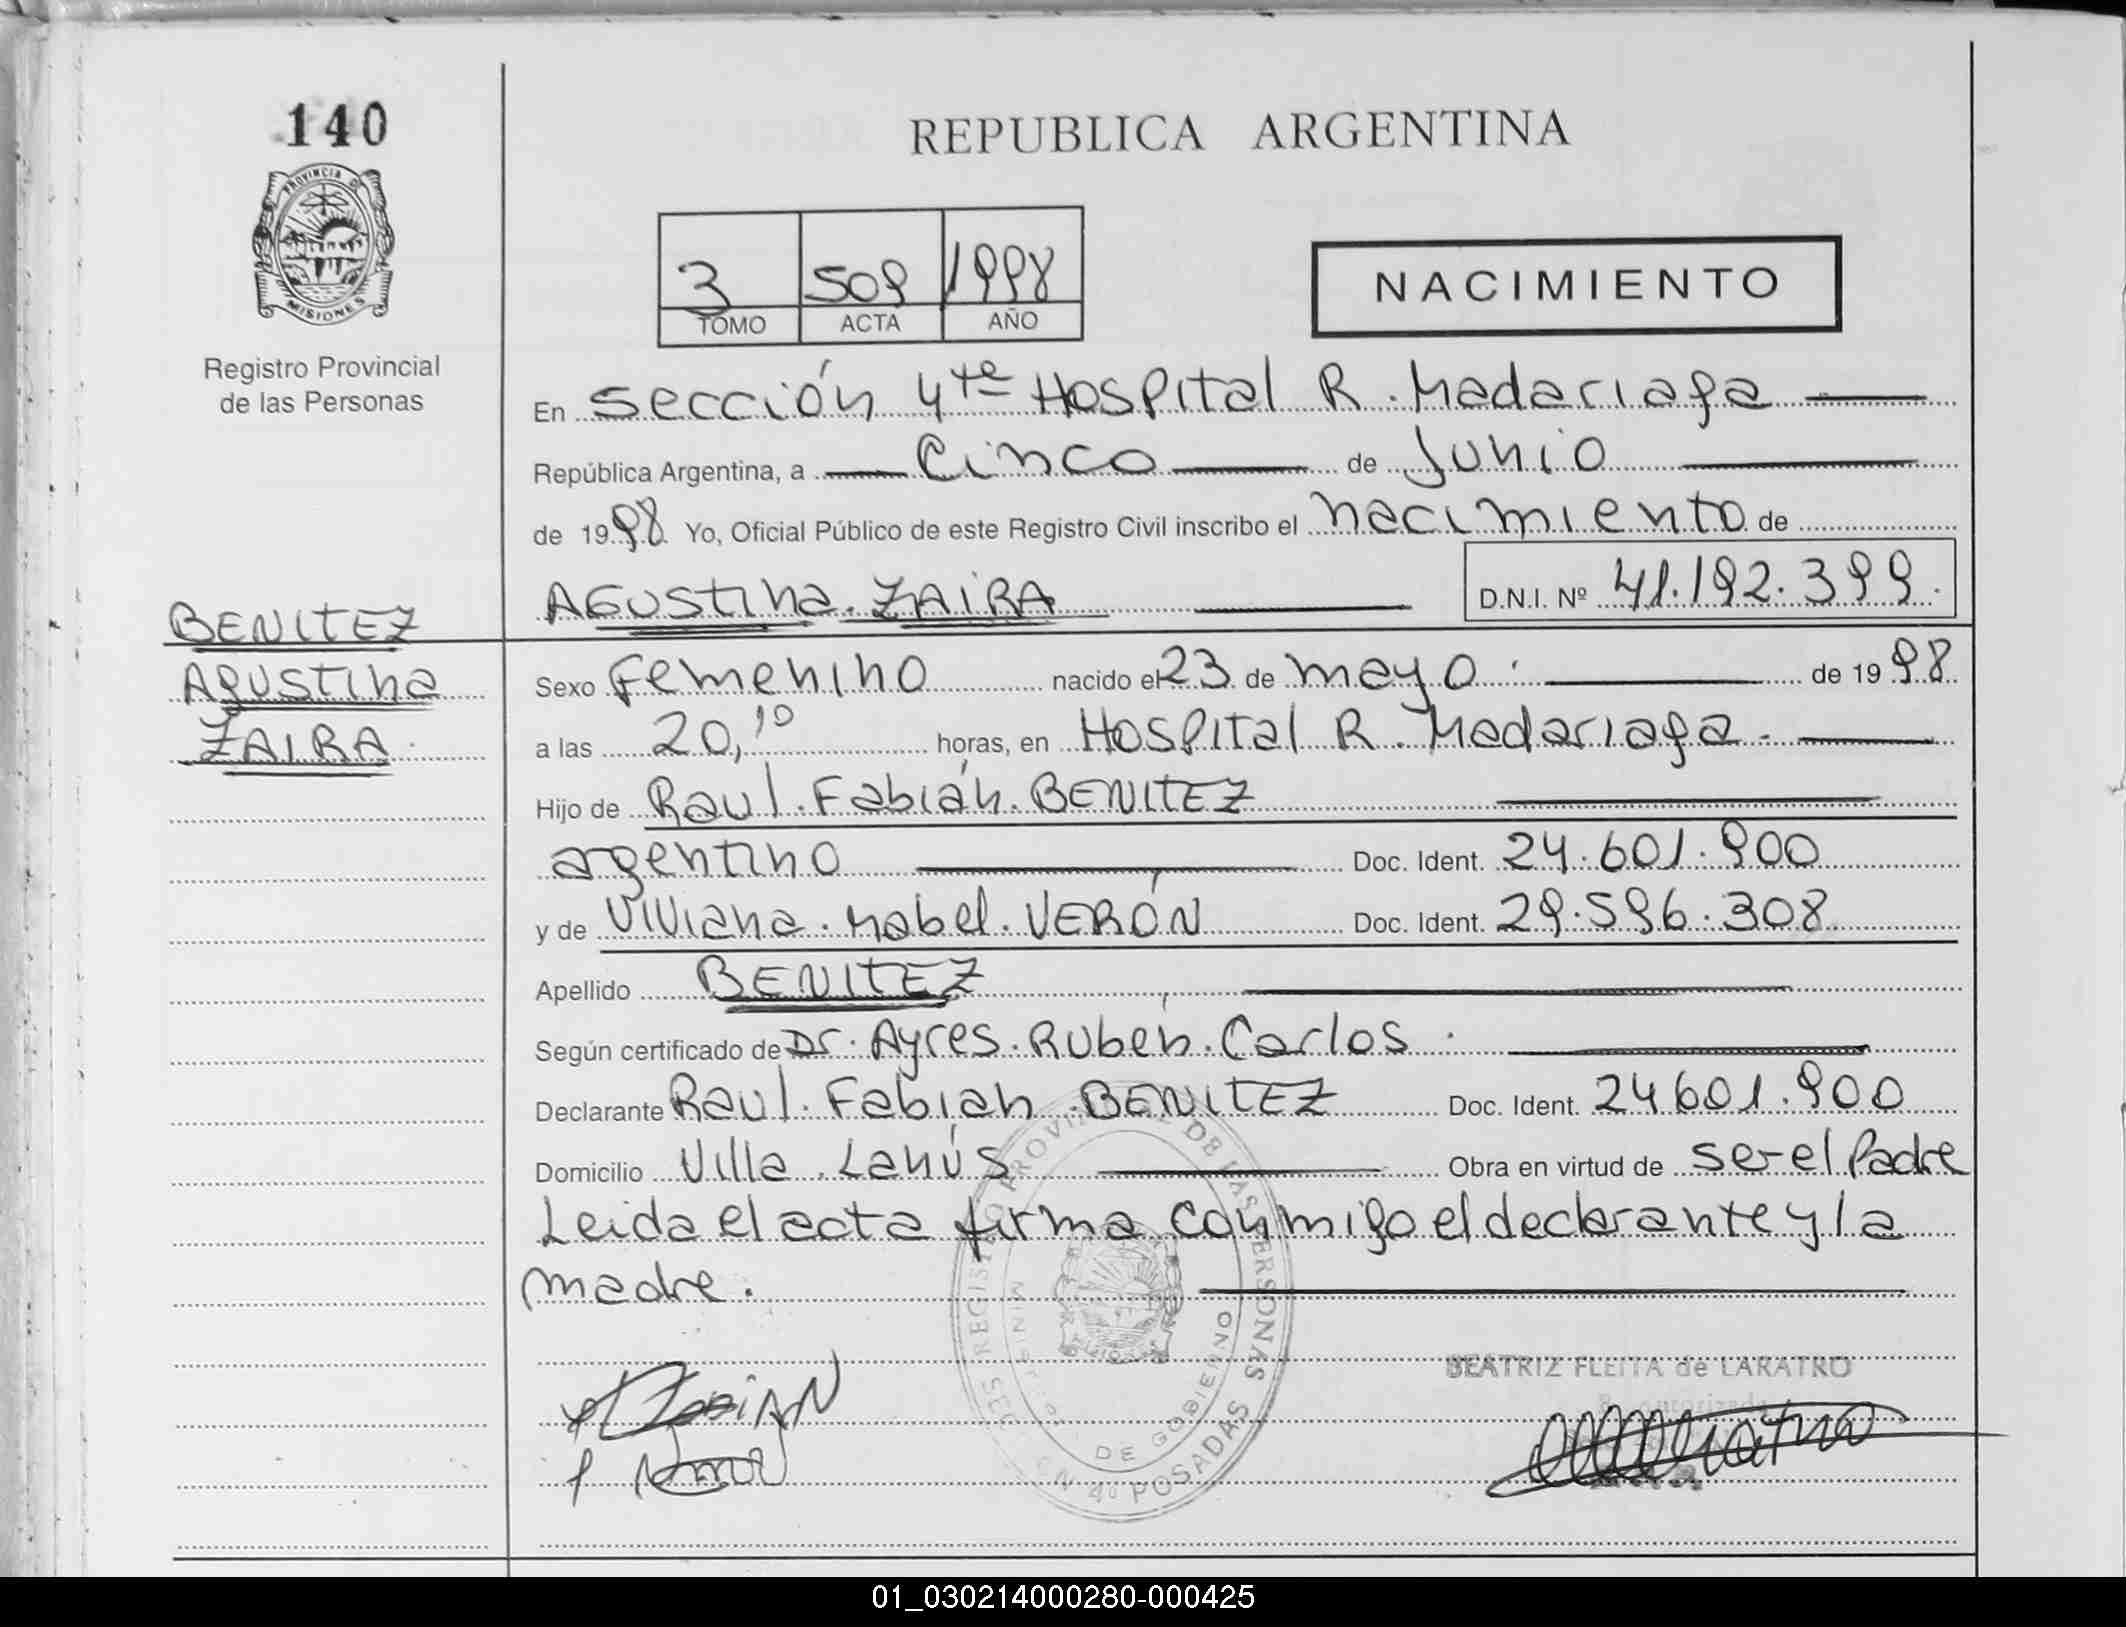 140
PROVINCIA DE
MISIONES
Registro Provincial
de las Personas
REPUBLICA ARGENTINA
3 509 1998
TOMO ACTA AÑO
NACIMIENTO
En sección 4ta Hospital R. Madariaga
República Argentina, a Cinco de Junio
de 1998 Yo, Oficial Público de este Registro Civil inscribo el nacimiento de
AGUSTINA ZAIRA D.N.I. Nº 41.192.399.
BENITEZ
AGUSTINA
ZAIRA.
Sexo Femenino nacido el 23 de mayo de 1998
a las 20,10 horas, en Hospital R. Madariaga.
Hijo de Raul Fabián BENITEZ
argentino Doc. Ident. 24.601.900
y de Viviana Mabel VERÓN Doc. Ident. 29.596.308
Apellido BENITEZ
Según certificado de Dr. Ayres Rubén Carlos.
Declarante Raul Fabian BENITEZ Doc. Ident. 24601.900
Domicilio Villa Lanús Obra en virtud de ser el Padre
Leida el acta firma conmigo el declarante y la
madre.
REGISTRO PROVINCIAL DE LAS PERSONAS
MINIST. DE GOBIERNO
SECCIÓN 4º POSADAS
BEATRIZ FLEITA de LARATRO
01_030214000280-000425